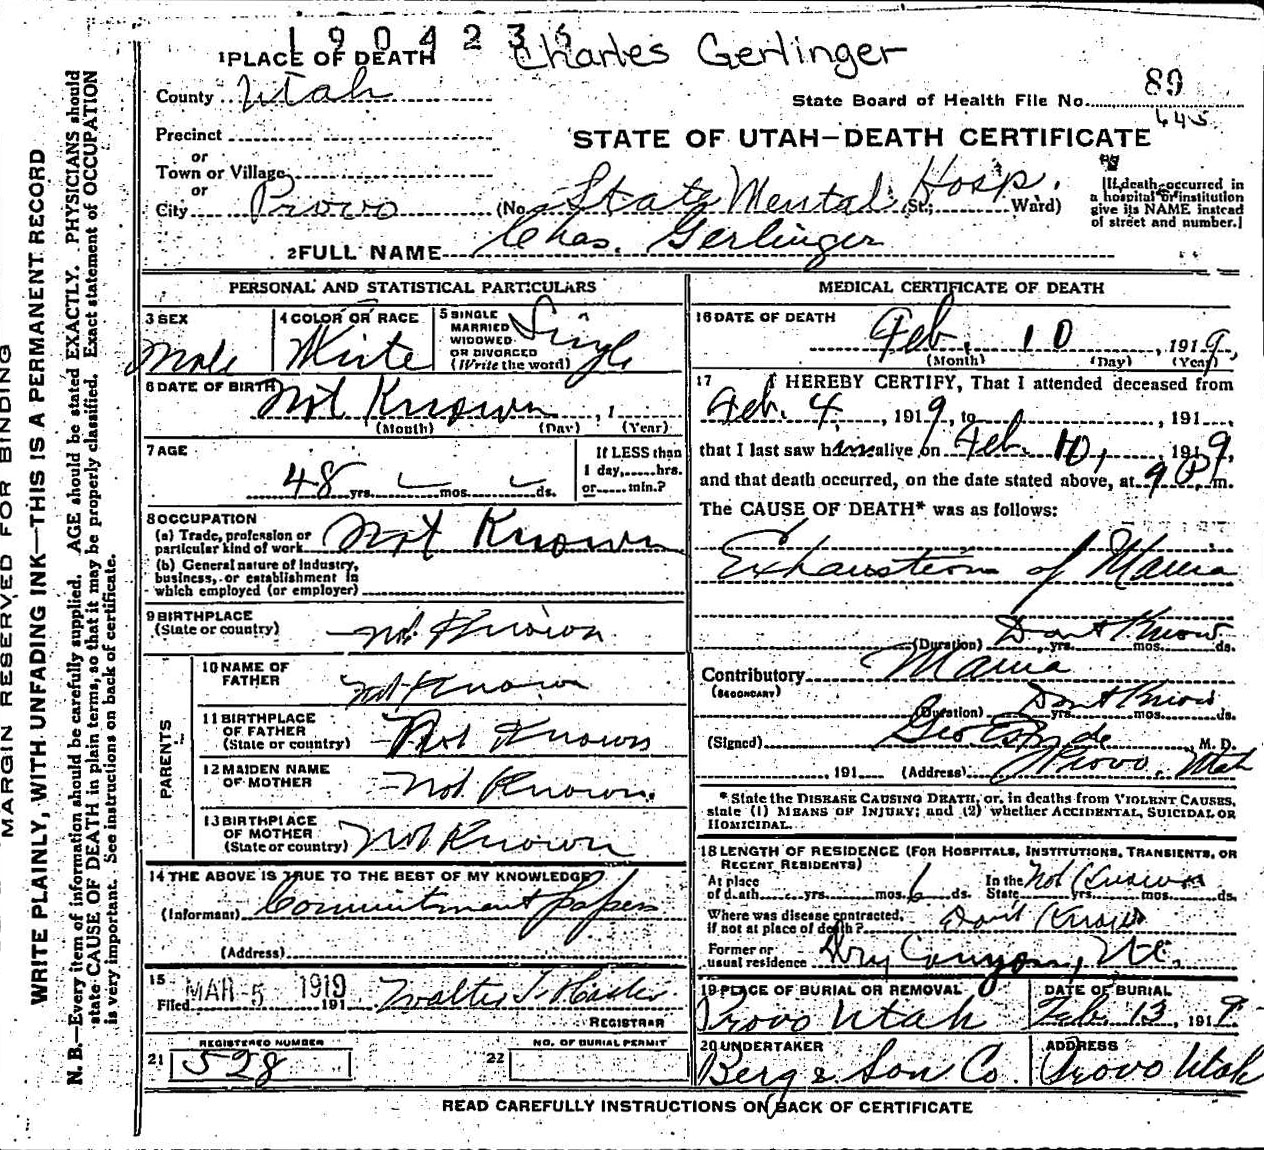 190423
1 PLACE OF DEATH Charles Gerlinger
County Utah
State Board of Health File No. 89
645
Precinct
STATE OF UTAH—DEATH CERTIFICATE
or
Town or Village
or
City Provo (No. State Mental Hosp. St.; Ward)
[If death occurred in
a hospital or institution
give its NAME instead
of street and number.]
2 FULL NAME Chas. Gerlinger
PERSONAL AND STATISTICAL PARTICULARS
3 SEX
Male
4 COLOR OR RACE
White
5 SINGLE
MARRIED
WIDOWED
OR DIVORCED
(Write the word)
Single
6 DATE OF BIRTH
Not Known , 1
(Month) (Day) (Year)
7 AGE
48 yrs. mos. ds.
If LESS than
1 day, hrs.
or min.?
8 OCCUPATION
(a) Trade, profession or
particular kind of work Not Known
(b) General nature of Industry,
business, or establishment in
which employed (or employer)
9 BIRTHPLACE
(State or country) Not Known
PARENTS
10 NAME OF
FATHER Not Known
11 BIRTHPLACE
OF FATHER
(State or country) Not Known
12 MAIDEN NAME
OF MOTHER Not Known.
13 BIRTHPLACE
OF MOTHER
(State or country) Not Known
14 THE ABOVE IS TRUE TO THE BEST OF MY KNOWLEDGE
(Informant) Commitment papers
(Address)
15
Filed MAR -5 1919 191 Walter T.
REGISTRAR
REGISTERED NUMBER
21 528
NO. OF BURIAL PERMIT
22
MEDICAL CERTIFICATE OF DEATH
16 DATE OF DEATH
Feb. 10 , 1919,
(Month) (Day) (Year)
17 I HEREBY CERTIFY, That I attended deceased from
Feb. 4, , 1919, to , 191 ,
that I last saw him alive on Feb. 10, , 1919,
and that death occurred, on the date stated above, at 9 P. m.
The CAUSE OF DEATH* was as follows:
Exhaustion of Mania
(Duration) Dont Know yrs. mos. ds.
Contributory Mania
(SECONDARY)
(Duration) Dont Know yrs. mos. ds.
(Signed) Geo M. D.
, 191 (Address) Provo, Utah
* State the DISEASE CAUSING DEATH, or, in deaths from VIOLENT CAUSES,
state (1) MEANS OF INJURY; and (2) whether ACCIDENTAL, SUICIDAL OR
HOMICIDAL.
18 LENGTH OF RESIDENCE (FOR HOSPITALS, INSTITUTIONS, TRANSIENTS, OR
RECENT RESIDENTS)
At place
of death yrs. mos. 6 ds. In the
State Not Known yrs. mos. ds.
Where was disease contracted,
if not at place of death? Dont Know
Former or
usual residence Dry Canyon, Ut.
19 PLACE OF BURIAL OR REMOVAL
Provo Utah
DATE OF BURIAL
Feb. 13, 1919
20 UNDERTAKER
Berg & Son Co.
ADDRESS
Provo Utah
READ CAREFULLY INSTRUCTIONS ON BACK OF CERTIFICATE
MARGIN RESERVED FOR BINDING
WRITE PLAINLY, WITH UNFADING INK—THIS IS A PERMANENT RECORD
N. B.—Every item of information should be carefully supplied. AGE should be stated EXACTLY. PHYSICIANS should
state CAUSE OF DEATH in plain terms, so that it may be properly classified. Exact statement of OCCUPATION
is very important. See instructions on back of certificate.